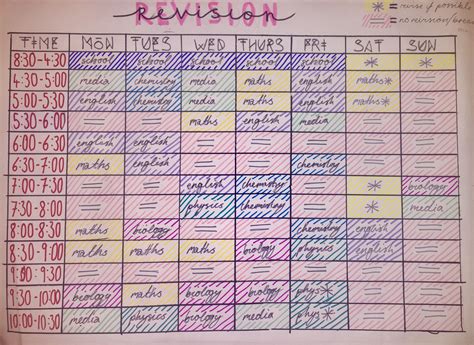 REVISION
revision
* = revise if possible
= = no revision/break
TIME MON TUES WED THURS FRI SAT SUN
8:30-4:30 school school school school school * *
4:30-5:00 media chemistry media maths maths maths* =
5:00-5:30 english chemistry english maths english maths* =
5:30-6:00 = = maths english media = =
6:00-6:30 english english = = = = =
6:30-7:00 maths english = = chemistry = =
7:00-7:30 = = english chemistry = * biology
7:30-8:00 = = physics chemistry = * media
8:00-8:30 maths biology = = chemistry english =
8:30-9:00 maths maths maths biology physics english =
9:00-9:30 = = = = = = =
9:30-10:00 biology maths biology biology phys* = =
10:00-10:30 media physics biology media phys* = =